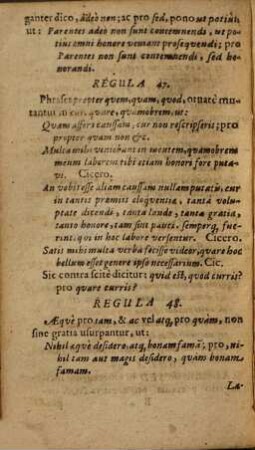 ganter dico, adeò non; ac pro sed, pono ut potius,
ut: Parentes adeò non sunt contemnendi, ut po-
tius omni honore veniant prosequendi; pro
Parentes non sunt contemnendi, sed ho-
norandi.
REGULA 47.
Phrases propter quem, quam, quod, ornatè mu-
tantur in cur, quare, quamobrem, ut:
Quam affers caussam, cur non rescripseris; pro
propter quam non &c.
Multa mihi veniebant in mentem, quamobrem
meum laborem tibi etiam honori fore puta-
vi. Cicero.
An vobis esse aliam caussam nullam putatis, cur
in tantis præmiis eloqventiæ, tanta volu-
ptate dicendi, tanta laude, tanta gratia,
tanto honore, tam sint pauci, semperq, fue-
rint, qui in hoc labore versentur. Cicero.
Satis mihi multa verba fecisse videor, quare hoc
bellum esset genere ipso necessarium. Cic.
Sic contra scitè dicitur: quid est, quod curris?
pro quare curris?
REGULA 48.
Æquè pro tam, & ac vel atq, pro quàm, non
sine gratia usurpantur, ut:
Nihil æqvè desidero, atq, bonam famã; pro, ni-
hil tam aut magis desidero, quàm bonam
famam.
La-